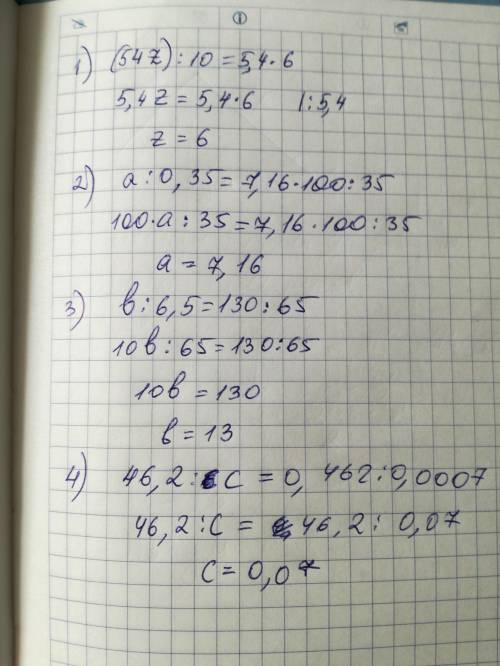 1) (54z) : 10 = 5,4 · 6
5,4z = 5,4 · 6 | : 5,4
z = 6
2) a : 0,35 = 7,16 · 100 : 35
100 · a : 35 = 7,16 · 100 : 35
a = 7,16
3) в : 6,5 = 130 : 65
10в : 65 = 130 : 65
10в = 130
в = 13
4) 46,2 : C = 0,462 : 0,0007
46,2 : C = 46,2 : 0,07
C = 0,07